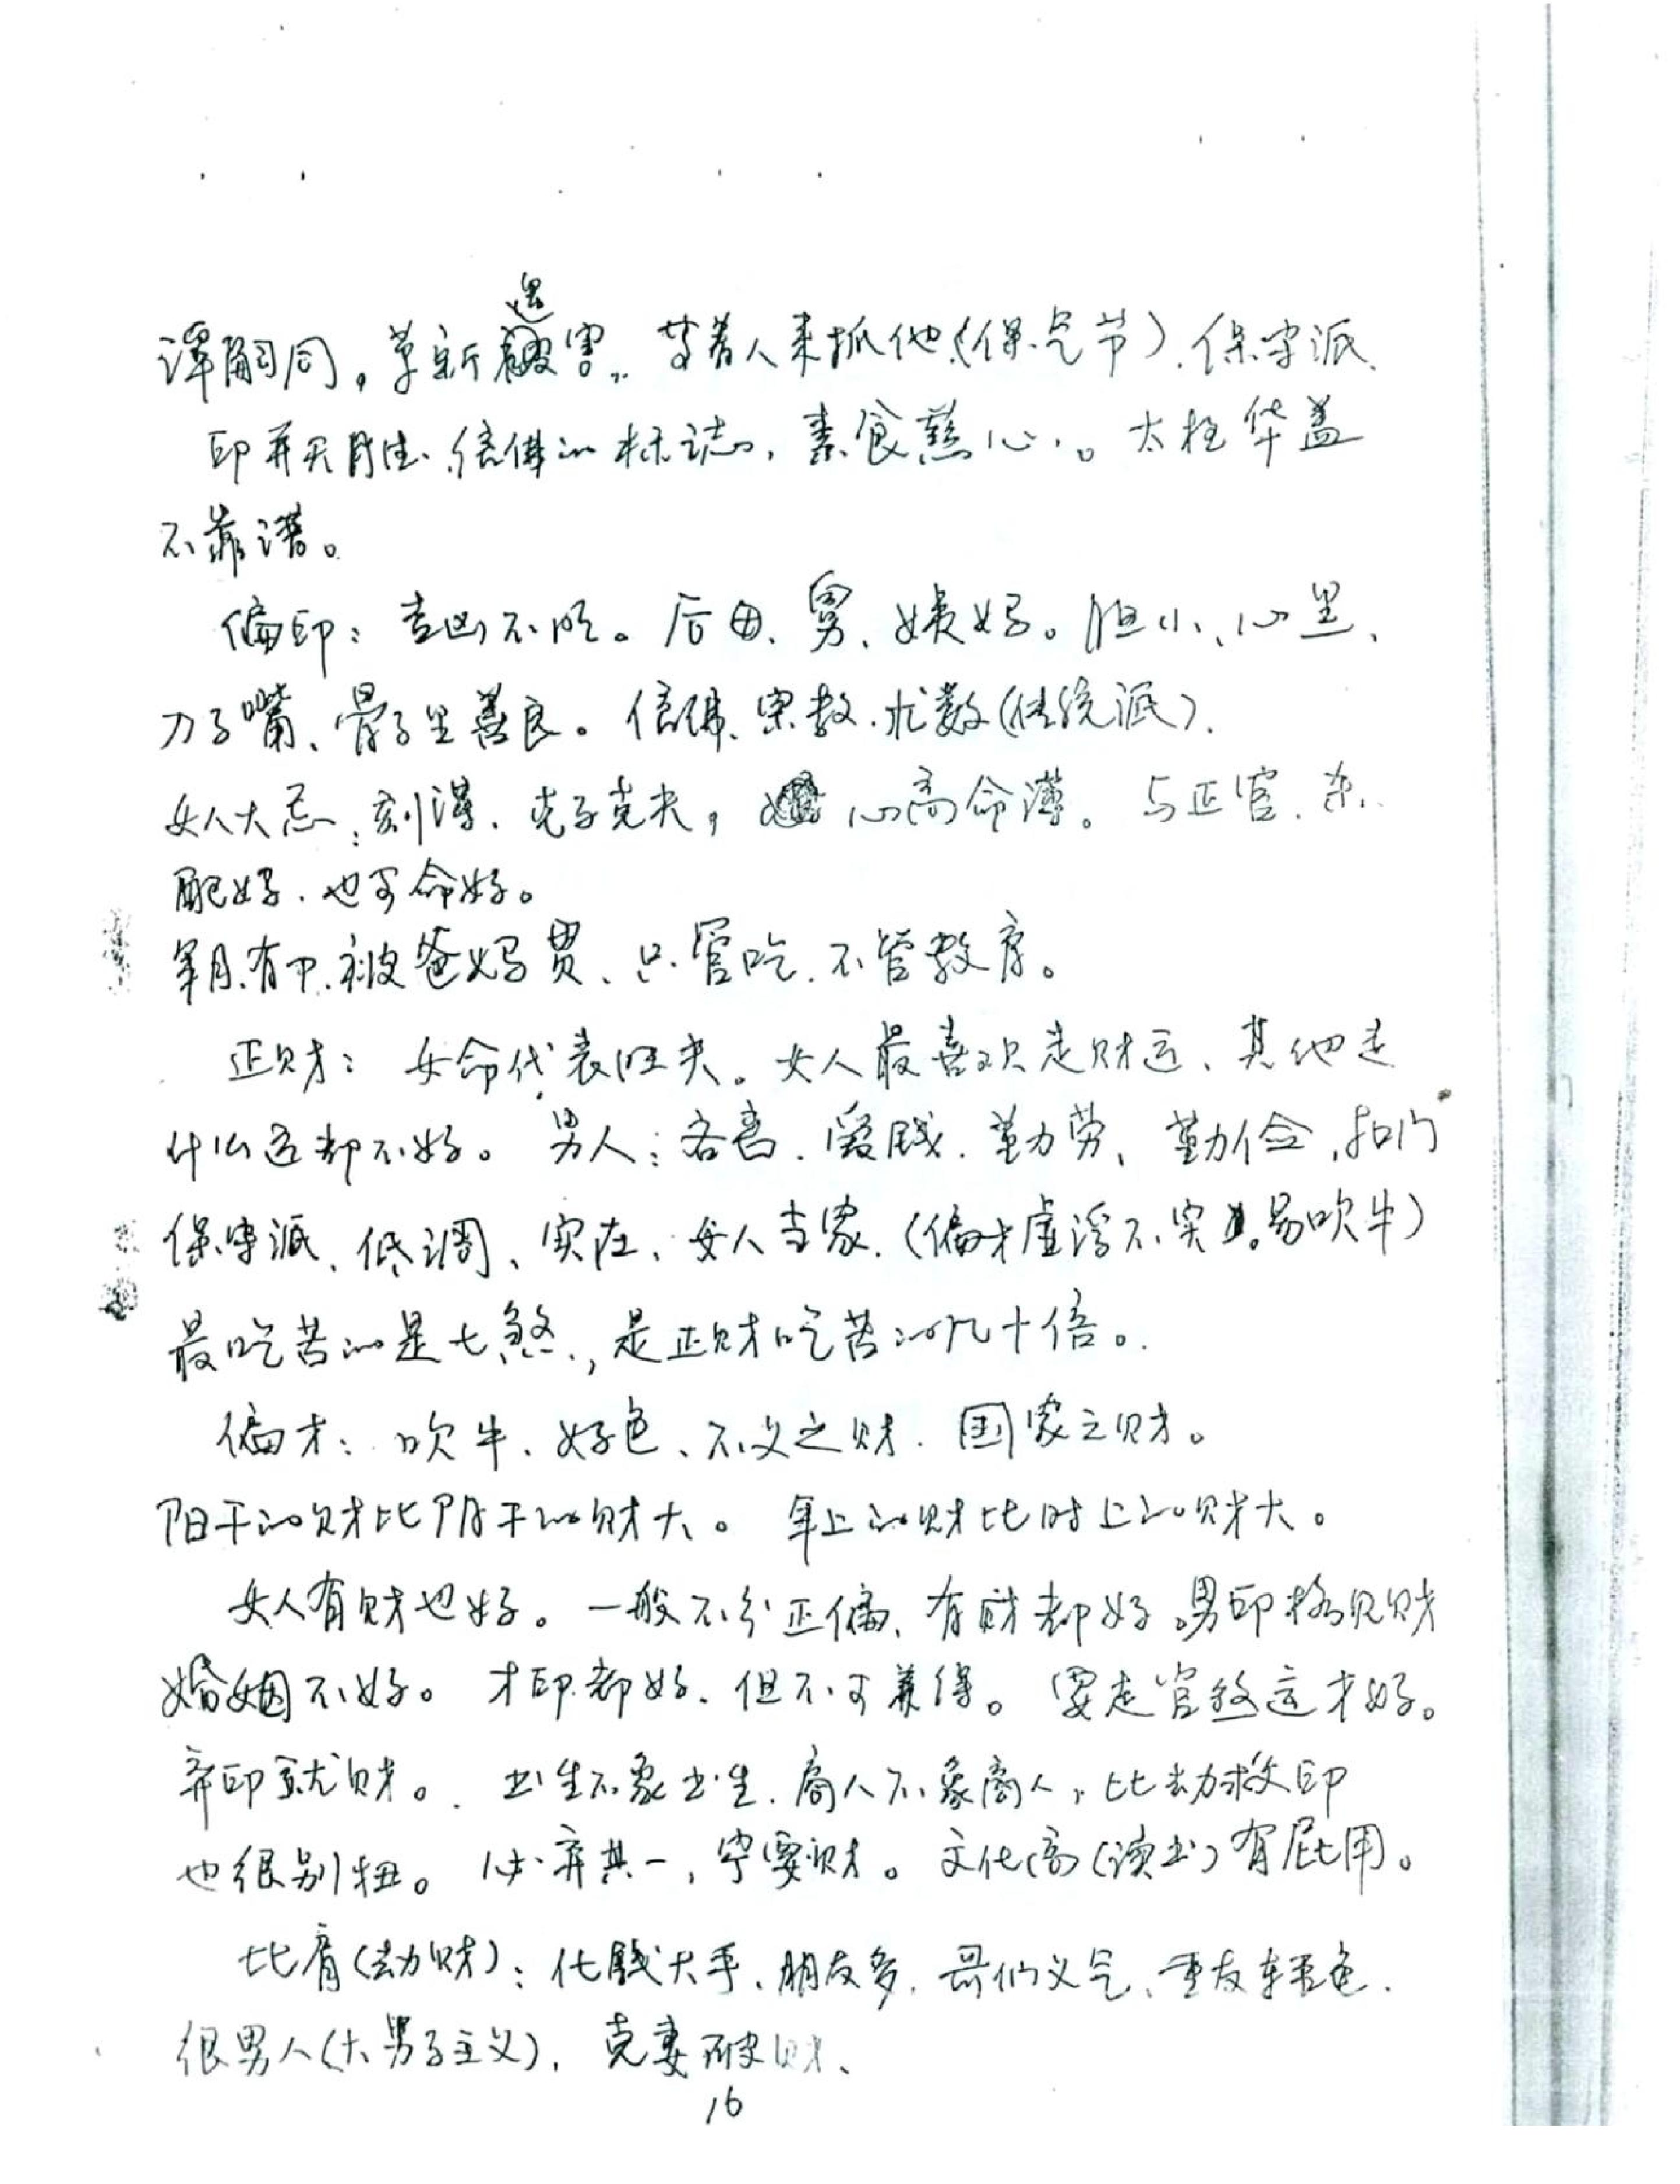 谭嗣同,革新遇害,等着人来抓他(保气节)、保守派、
印并天月德、信佛的标志,素食慈心。太极华盖
不靠谱。
偏印:吉凶不明。后母、舅、姨妈。胆小、心黑、
刀子嘴、骨子里善良。信佛、宗教、术数(传统派)、
女人大忌:刻薄、克子克夫,心高命薄。与正官、杀、
配好、也可命好。
年月有印、被爸妈贯、只管吃、不管教育。
正财:女命代表旺夫。女人最喜欢走财运、其他走
什么运都不好。男人:吝啬、爱钱、勤劳、勤俭,抠门
保守派、低调、实在、女人当家、(偏才虚浮不实,易吹牛)
最吃苦的是七煞,是正财吃苦的几十倍。
偏才:吹牛、好色、不义之财、国家之财。
阳干的财比阴干的财大。年上的财比时上的财大。
女人有财也好。一般不分正偏、有财都好。男印格见财
婚姻不好。才印都好、但不可兼得。要走官煞运才好。
弃印就财。书生不象书生、商人不象商人,比劫救印
也很别扭。必弃其一,宁要财。文化高(读书)有屁用。
比肩(劫财):化钱大手、朋友多、哥们义气、重友轻色、
很男人(大男子主义)、克妻破财、
16